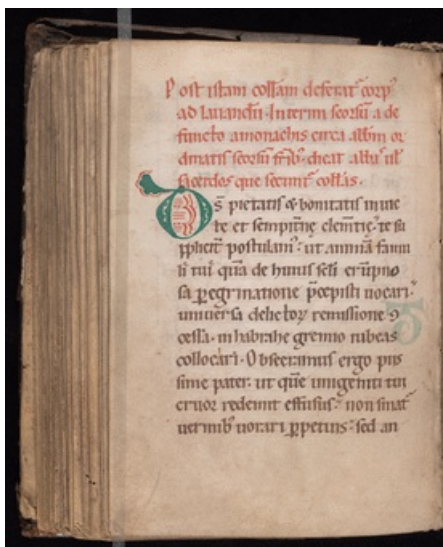 Post istam coll̄am deferat᷑ corpꝰ
ad lauandū. Interim seorsū a de
functo amonachis circa abb̄m or
dinatis seorsū fr̄ibꝰ. dicat abb᷑ ul᷑
sacerdos que secunt᷑ coll̄as.
Ds̄ pietatis & bonitatis inuic
te et sempitn̄e clem̄tię te su
pplicit᷑ postulam᷑. ut animā famu
li tui quā de huius sc̄li
sa peregrinatione p̄cepisti uocari.
uniuersa delictoꝝ remissione ꝯ
cessa. in habrahe gremio iubeas
collocari. Obsecramus ergo piis
sime pater. ut quē unigeniti tui
cruor redemit effusus. non sinas
uermibꝰ uorari ꝑpetuis. sed an